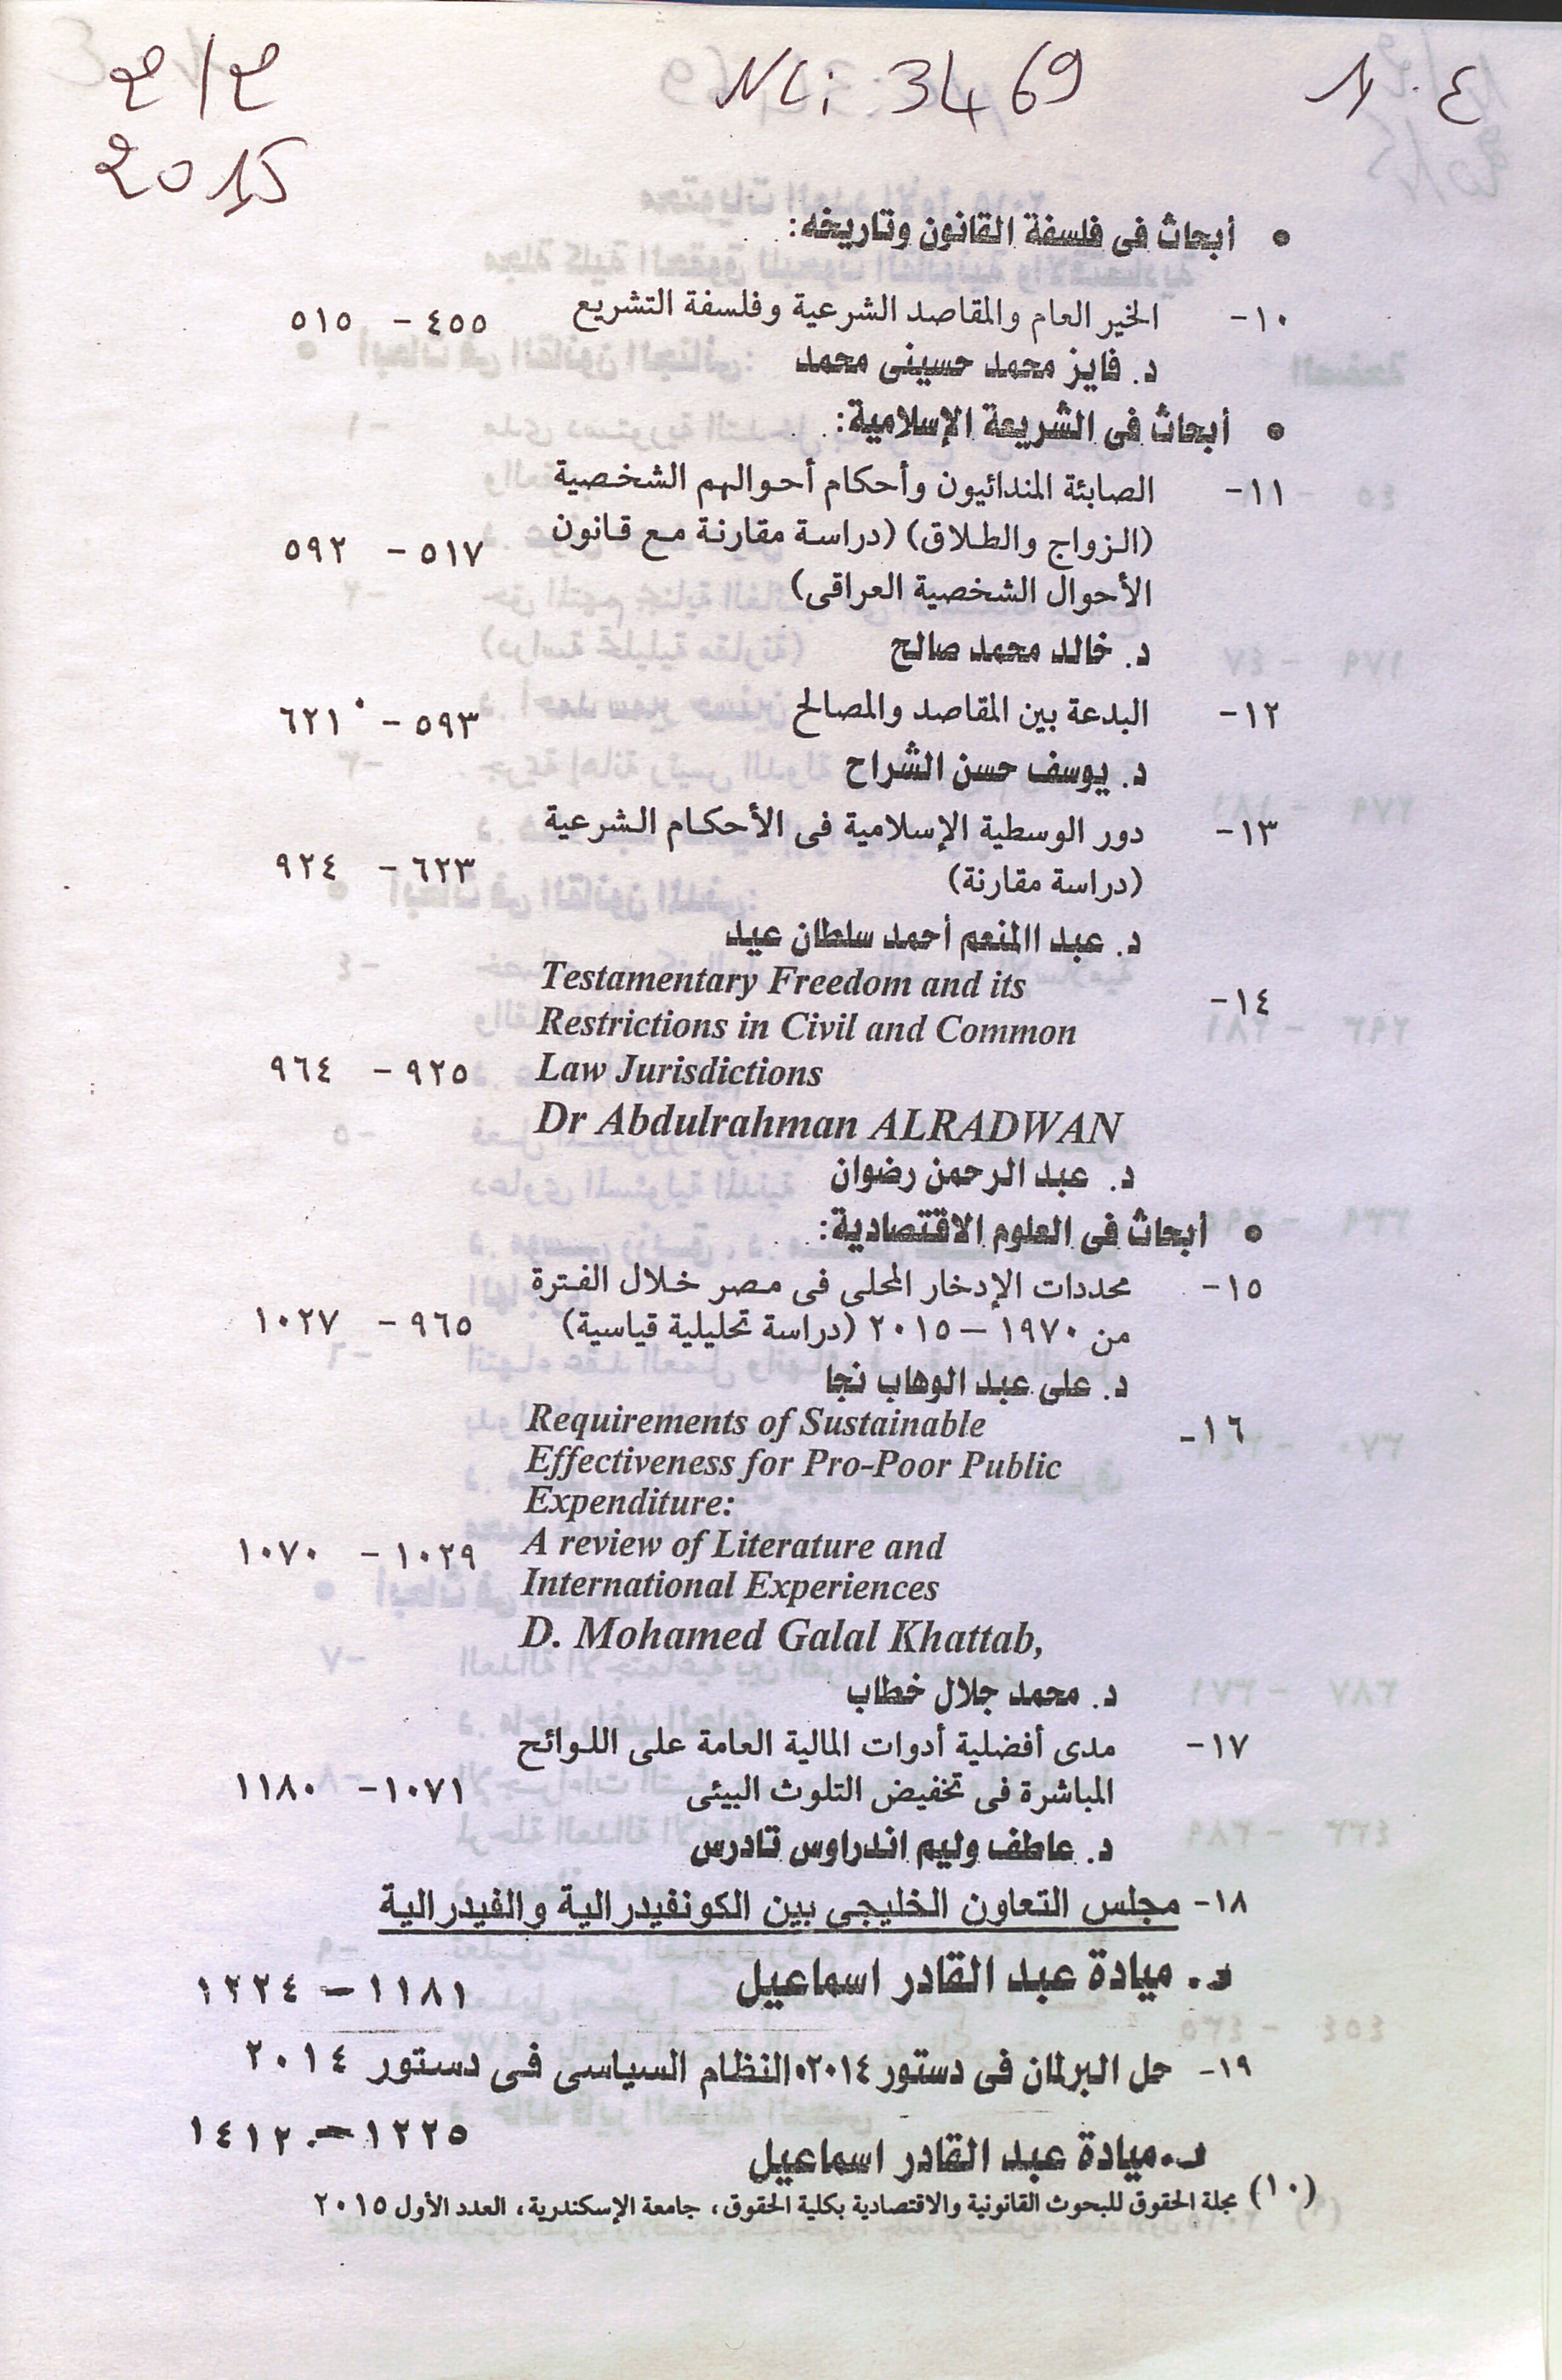 NLi 3469
2015
• أبحاث فى فلسفة القانون وتاريخه:
١٠- الخير العام والمقاصد الشرعية وفلسفة التشريع ٤٥٥ - ٥١٥
د. فايز محمد حسينى محمد
• أبحاث فى الشريعة الإسلامية:
١١- الصابئة المندائيون وأحكام أحوالهم الشخصية
(الزواج والطلاق) (دراسة مقارنة مع قانون ٥١٧ - ٥٩٢
الأحوال الشخصية العراقى)
د. خالد محمد صالح
١٢- البدعة بين المقاصد والمصالح ٥٩٣ - ٦٢١
د. يوسف حسن الشراح
١٣- دور الوسطية الإسلامية فى الأحكام الشرعية
(دراسة مقارنة) ٦٢٣ - ٩٢٤
د. عبد االمنعم أحمد سلطان عيد
١٤- Testamentary Freedom and its
Restrictions in Civil and Common
Law Jurisdictions ٩٢٥ - ٩٦٤
Dr Abdulrahman ALRADWAN
د. عبد الرحمن رضوان
• أبحاث فى العلوم الاقتصادية:
١٥- محددات الإدخار المحلى فى مصر خلال الفترة
من ١٩٧٠ – ٢٠١٥ (دراسة تحليلية قياسية) ٩٦٥ - ١٠٢٧
د. على عبد الوهاب نجا
١٦- Requirements of Sustainable
Effectiveness for Pro-Poor Public
Expenditure:
A review of Literature and ١٠٢٩ - ١٠٧٠
International Experiences
D. Mohamed Galal Khattab,
د. محمد جلال خطاب
١٧- مدى أفضلية أدوات المالية العامة على اللوائح
المباشرة فى تخفيض التلوث البيئى ١٠٧١- ١١٨٠
د. عاطف وليم اندراوس تادرس
١٨- مجلس التعاون الخليجى بين الكونفيدرالية والفيدرالية
د. ميادة عبد القادر اسماعيل ١١٨١ – ١٢٢٤
١٩- حل البرلمان فى دستور ٢٠١٤ النظام السياسى فى دستور ٢٠١٤
د. ميادة عبد القادر اسماعيل ١٢٢٥ - ١٤١٢
(١٠) مجلة الحقوق للبحوث القانونية والاقتصادية بكلية الحقوق، جامعة الإسكندرية، العدد الأول ٢٠١٥